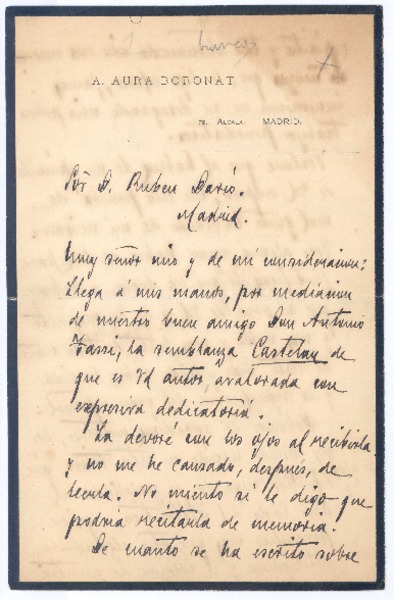 A. AURA BORONAT
ALCALÁ, MADRID.
Sor D. Ruben Dario.
Madrid.
Muy señor mio y de mi consideracion:
Llega á mis manos, por mediacion
de nuestro buen amigo Don Antonio
la semblanza Castelar de
que es Vd autor, avalorada con
expresiva dedicatoria.
La devoré con los ojos al recibirla
y no me he cansado, despues, de
leerla. No miento si le digo que
podria recitarla de memoria.
De cuanto se ha escrito sobre